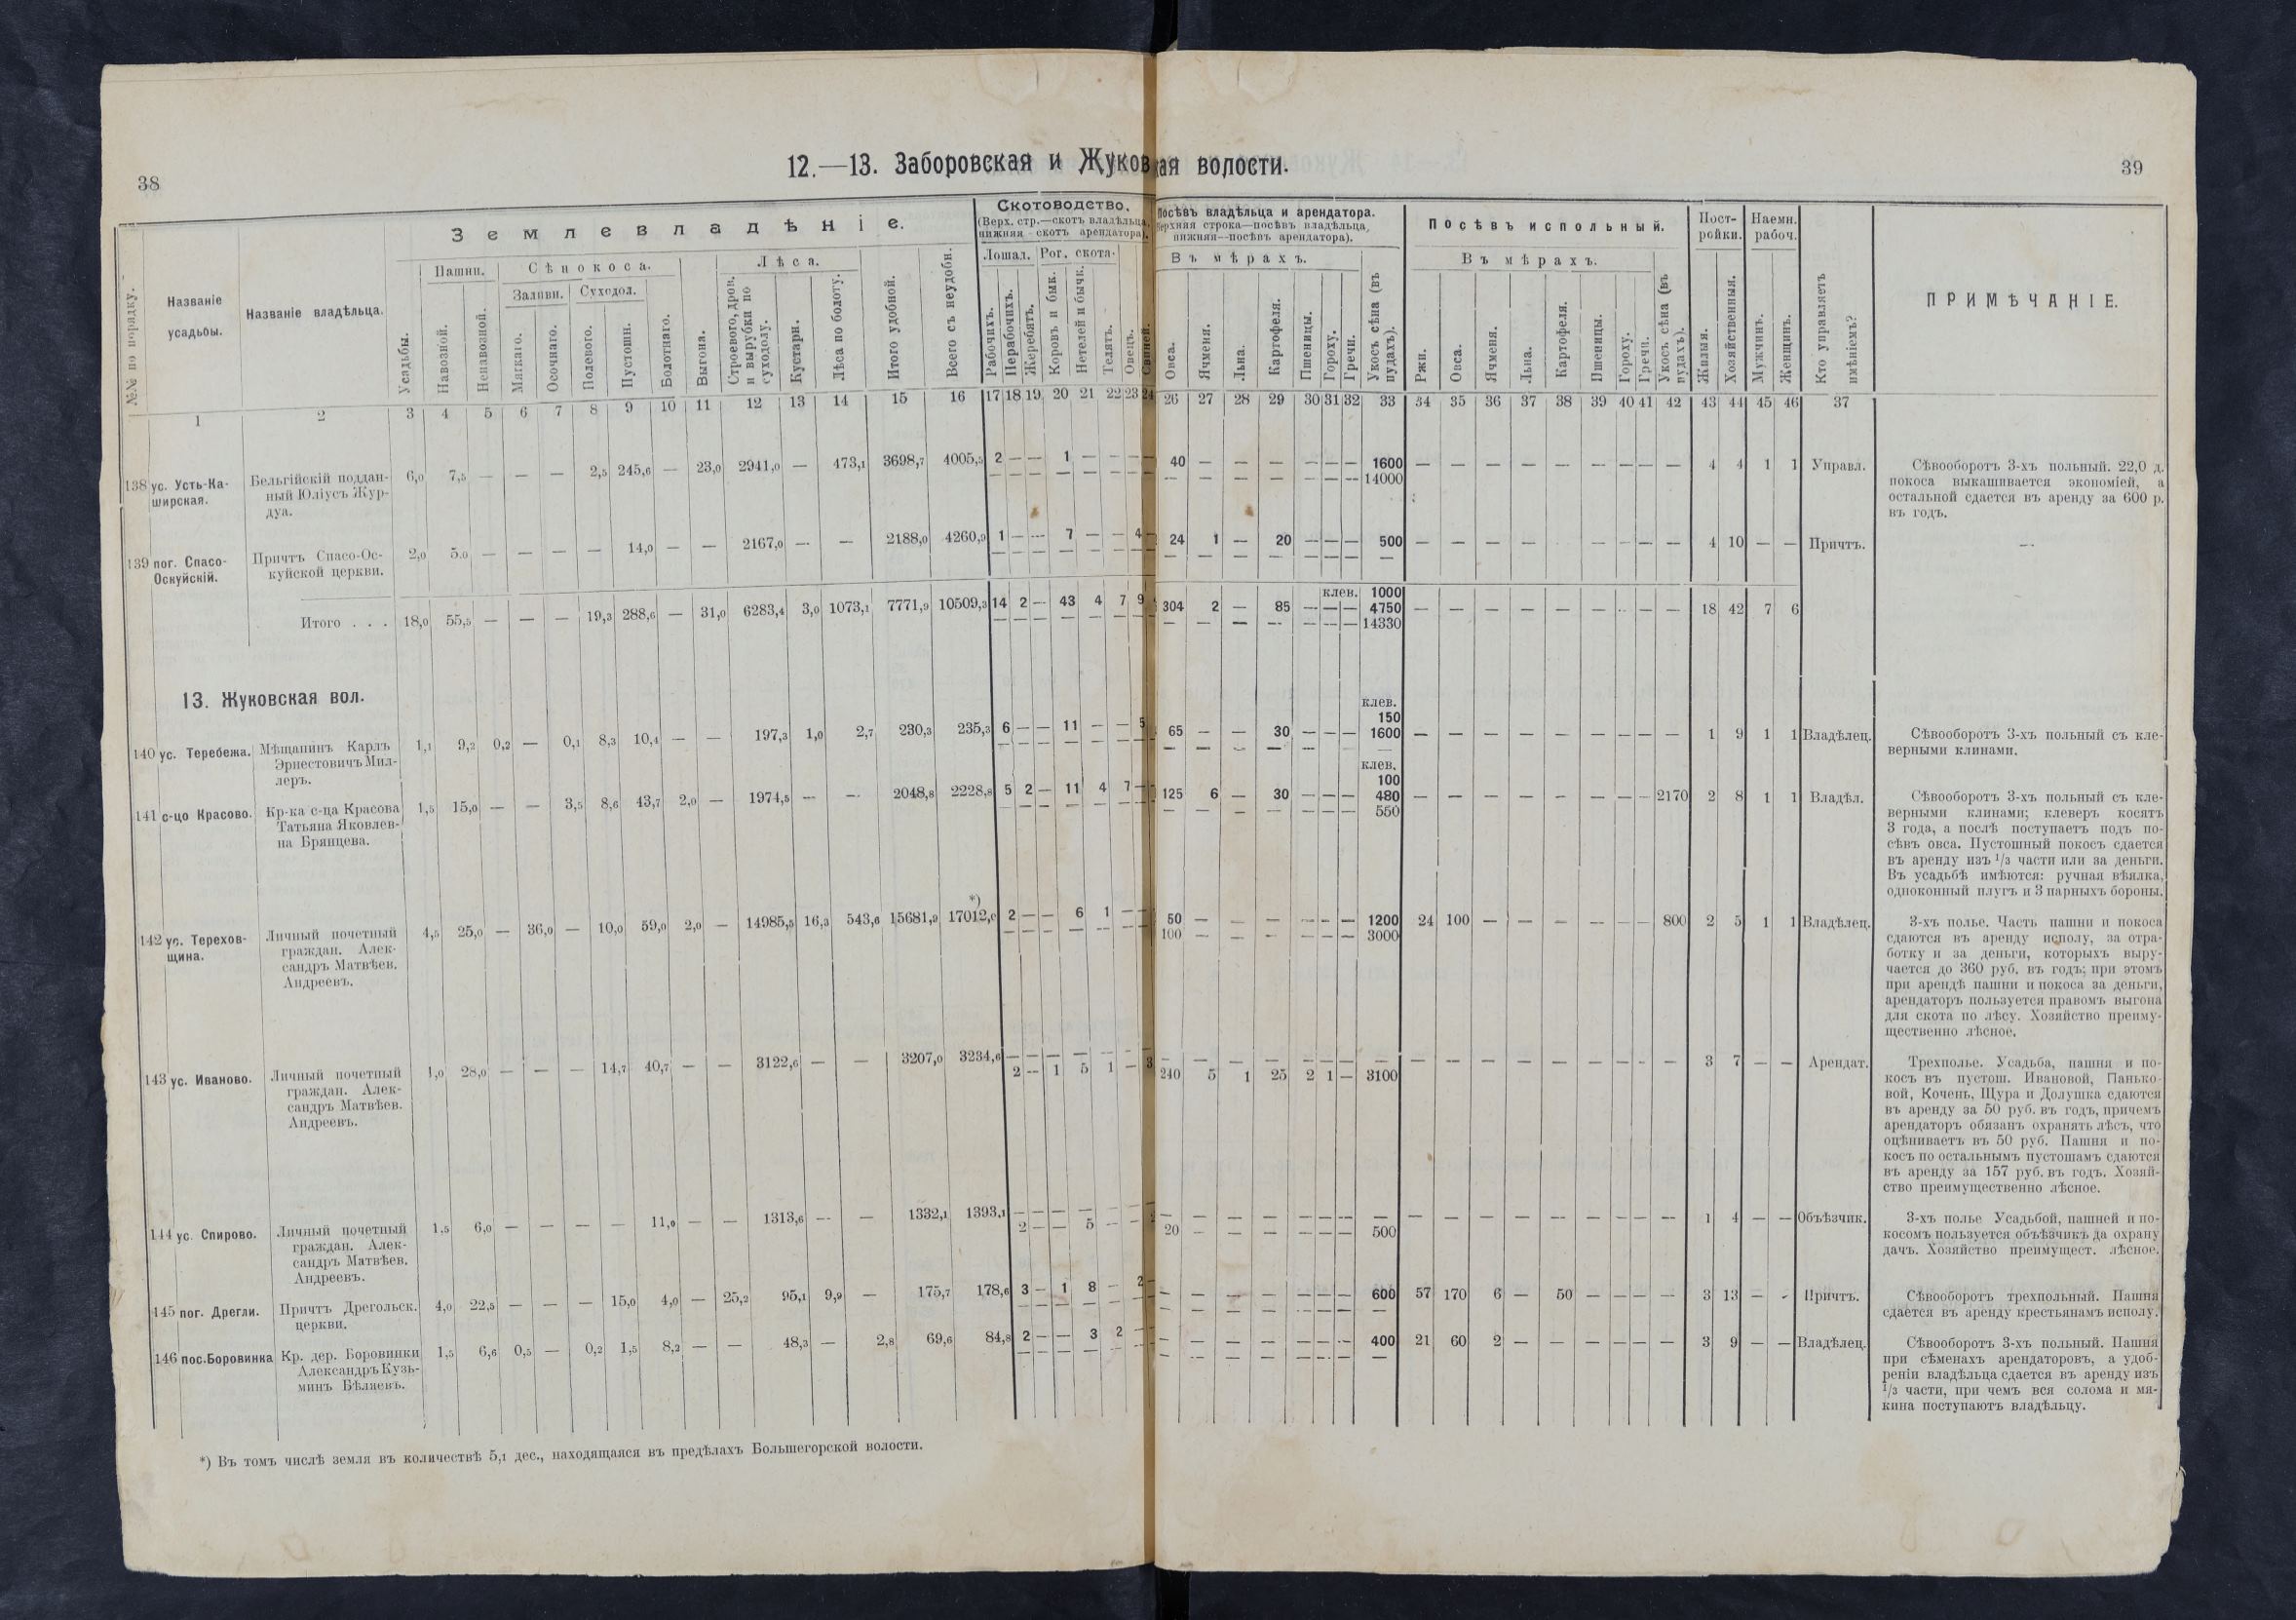 38
12.—13. Заборовская и Жуковская волости.
39
Землевладѣніе.
Скотоводство.
(Верх. стр.—скотъ владѣльца,
нижняя скотъ арендатора).
Посѣвъ владѣльца и арендатора.
Верхняя строка—посѣвъ владѣльца,
нижняя—посѣвъ арендатора).
Посѣвъ испольный.
Пост-
ройки.
Наемн.
рабоч.
№№ по порядку.
Названіе
усадьбы.
Названіе владѣльца.
Усадьбы.
Пашни.
Навозной.
Ненавозной.
Сѣнокоса.
Заливн.
Мягкаго.
Осочнаго.
Суходол.
Полевого.
Пустошн.
Болотнаго.
Выгона.
Лѣса.
Строевого, дров.
и вырубки по
суходолу.
Кустарн.
Лѣса по болоту.
Итого удобной.
Всего съ неудобн.
Лошад.
Рабочихъ.
Нерабочихъ.
Жеребятъ.
Рог. скота.
Коровъ и бык.
Нетелей и бычк.
Телятъ.
Овецъ.
Свиней.
Въ мѣрахъ.
Овса.
Ячменя.
Льна.
Картофеля.
Пшеницы.
Гороху.
Гречи.
Укосъ сѣна (въ
пудахъ).
Въ мѣрахъ.
Ржи.
Овса.
Ячменя.
Льна.
Картофеля.
Пшеницы.
Гороху.
Гречи.
Укосъ сѣна (въ
пудахъ).
Жилыя.
Хозяйственныя.
Мужчинъ.
Женщинъ.
Кто управляетъ
имѣніемъ?
ПРИМѢЧАНІЕ.
1 2 3 4 5 6 7 8 9 10 11 12 13 14 15 16 17 18 19 20 21 22 23 24 26 27 28 29 30 31 32 33 34 35 36 37 38 39 40 41 42 43 44 45 46 37
138 ус. Усть-Ка-
ширская.
Бельгійскій поддан-
ный Юліусъ Жур-
дуа.
6,0 7,5 — — — 2,5 245,6 — 23,0 2941,0 — 473,1 3698,7 4005,5 2 — — 1 — — — —
— — — — — — — —
40 — — — — — — 1600 — — — — — — — — — 4 4 1 1 Управл.
— — — — — — — 14000
Сѣвооборотъ 3-хъ польный. 22,0 д.
покоса выкашивается экономіей, а
остальной сдается въ аренду за 600 р.
въ годъ.
139 пог. Спасо-
Оскуйскій.
Причтъ Спасо-Ос-
куйской церкви.
2,0 5,0 — — — — 14,0 — — 2167,0 — — 2188,0 4260,9 1 — — 7 — — 4 —
— — — — — — — —
24 1 — 20 — — — 500 — — — — — — — — 4 10 — — Причтъ.
— — — — — — — —
—
Итого . . . 18,0 55,5 — — — 19,3 288,6 — 31,0 6283,4 3,0 1073,1 7771,9 10509,3 14 2 — 43 4 7 9
— — — — — — —
клев. 1000
304 2 — 85 — — — 4750 — — — — — — — — — 18 42 7 6
— — — — — — — 14330
13. Жуковская вол.
140 ус. Теребежа.
Мѣщанинъ Карлъ
Эрнестовичъ Мил-
леръ.
1,1 9,2 0,2 — 0,1 8,3 10,4 — — 197,3 1,0 2,7 230,3 235,3 6 — — 11 — — 5
— — — — — — —
клев.
150
65 — — 30 — — — 1600 — — — — — — — — — 1 9 1 1 Владѣлец.
— — — — — —
Сѣвооборотъ 3-хъ польный съ кле-
верными клинами.
141 с-цо Красово.
Кр-ка с-ца Красова
Татьяна Яковлев-
на Брянцева.
1,5 15,0 — — 3,5 8,6 43,7 2,0 — 1974,5 — — 2048,8 2228,8 5 2 — 11 4 7 —
— — — — — — —
клев.
100
125 6 — 30 — — — 480 — — — — — — — — 2170 2 8 1 1 Владѣл.
— — — — — — — 550
Сѣвооборотъ 3-хъ польный съ кле-
верными клинами; клеверъ косятъ
3 года, а послѣ поступаетъ подъ по-
сѣвъ овса. Пустошный покосъ сдается
въ аренду изъ 1/3 части или за деньги.
Въ усадьбѣ имѣются: ручная вѣялка,
одноконный плугъ и 3 парныхъ бороны.
142 ус. Терехов-
щина.
Личный почетный
граждан. Алек-
сандръ Матвѣев.
Андреевъ.
*)
4,5 25,0 — 36,0 — 10,0 59,0 2,0 — 14985,5 16,3 543,6 15681,9 17012,0 2 — — 6 1 — —
— — — — — — —
50 — — — — — — 1200 24 100 — — — — — — 800 2 5 1 1 Владѣлец.
100 — — — — — — 3000
3-хъ полье. Часть пашни и покоса
сдаются въ аренду исполу, за отра-
ботку и за деньги, которыхъ выру-
чается до 360 руб. въ годъ; при этомъ
при арендѣ пашни и покоса за деньги,
арендаторъ пользуется правомъ выгона
для скота по лѣсу. Хозяйство преиму-
щественно лѣсное.
143 ус. Иваново.
Личный почетный
граждан. Алек-
сандръ Матвѣев.
Андреевъ.
1,0 28,0 — — — 14,7 40,7 — — 3122,6 — — 3207,0 3234,6 — — — — — — —
2 — 1 5 1 — 3
— — — — — — — — — — — — — — — — — 3 7 — — Арендат.
240 5 1 25 2 1 — 3100
Трехполье. Усадьба, пашня и по-
косъ въ пустош. Ивановой, Панько-
вой, Кочень, Щура и Долушка сдаются
въ аренду за 50 руб. въ годъ, причемъ
арендаторъ обязанъ охранять лѣсъ, что
оцѣниваетъ въ 50 руб. Пашня и по-
косъ по остальнымъ пустошамъ сдаются
въ аренду за 157 руб. въ годъ. Хозяй-
ство преимущественно лѣсное.
144 ус. Спирово.
Личный почетный
граждан. Алек-
сандръ Матвѣев.
Андреевъ.
1,5 6,0 — — — — 11,0 — — 1313,6 — — 1332,1 1393,1 — — — — — — —
2 — — 5 — —
— — — — — — — — — — — — — — — — — 1 4 — — Объѣзчик.
20 — — — — — — 500
3-хъ полье Усадьбой, пашней и по-
косомъ пользуется объѣзчикъ да охрану
дачъ. Хозяйство преимущест. лѣсное.
145 пог. Дрегли.
Причтъ Дрегольск.
церкви.
4,0 22,5 — — — 15,0 4,0 — 25,2 95,1 9,9 — 175,7 178,6 3 — 1 8 — 2 —
— — — — — — —
— — — — — — — 600 57 170 6 — 50 — — — — 3 13 — — Причтъ.
— — — — — — — —
Сѣвооборотъ трехпольный. Пашня
сдается въ аренду крестьянамъ исполу.
146 пос. Боровинка
Кр. дер. Боровинки
Александръ Кузь-
минъ Бѣляевъ.
1,5 6,6 0,5 — 0,2 1,5 8,2 — — 48,3 — 2,8 69,6 84,8 2 — — 3 2 —
— — — — — —
— — — — — — — 400 21 60 2 — — — — — — 3 9 — — Владѣлец.
— — — — — — — —
Сѣвооборотъ 3-хъ польный. Пашня
при сѣменахъ арендаторовъ, а удоб-
реніи владѣльца сдается въ аренду изъ
1/3 части, при чемъ вся солома и мя-
кина поступаютъ владѣльцу.
*) Въ томъ числѣ земля въ количествѣ 5,1 дес., находящаяся въ предѣлахъ Большегорской волости.